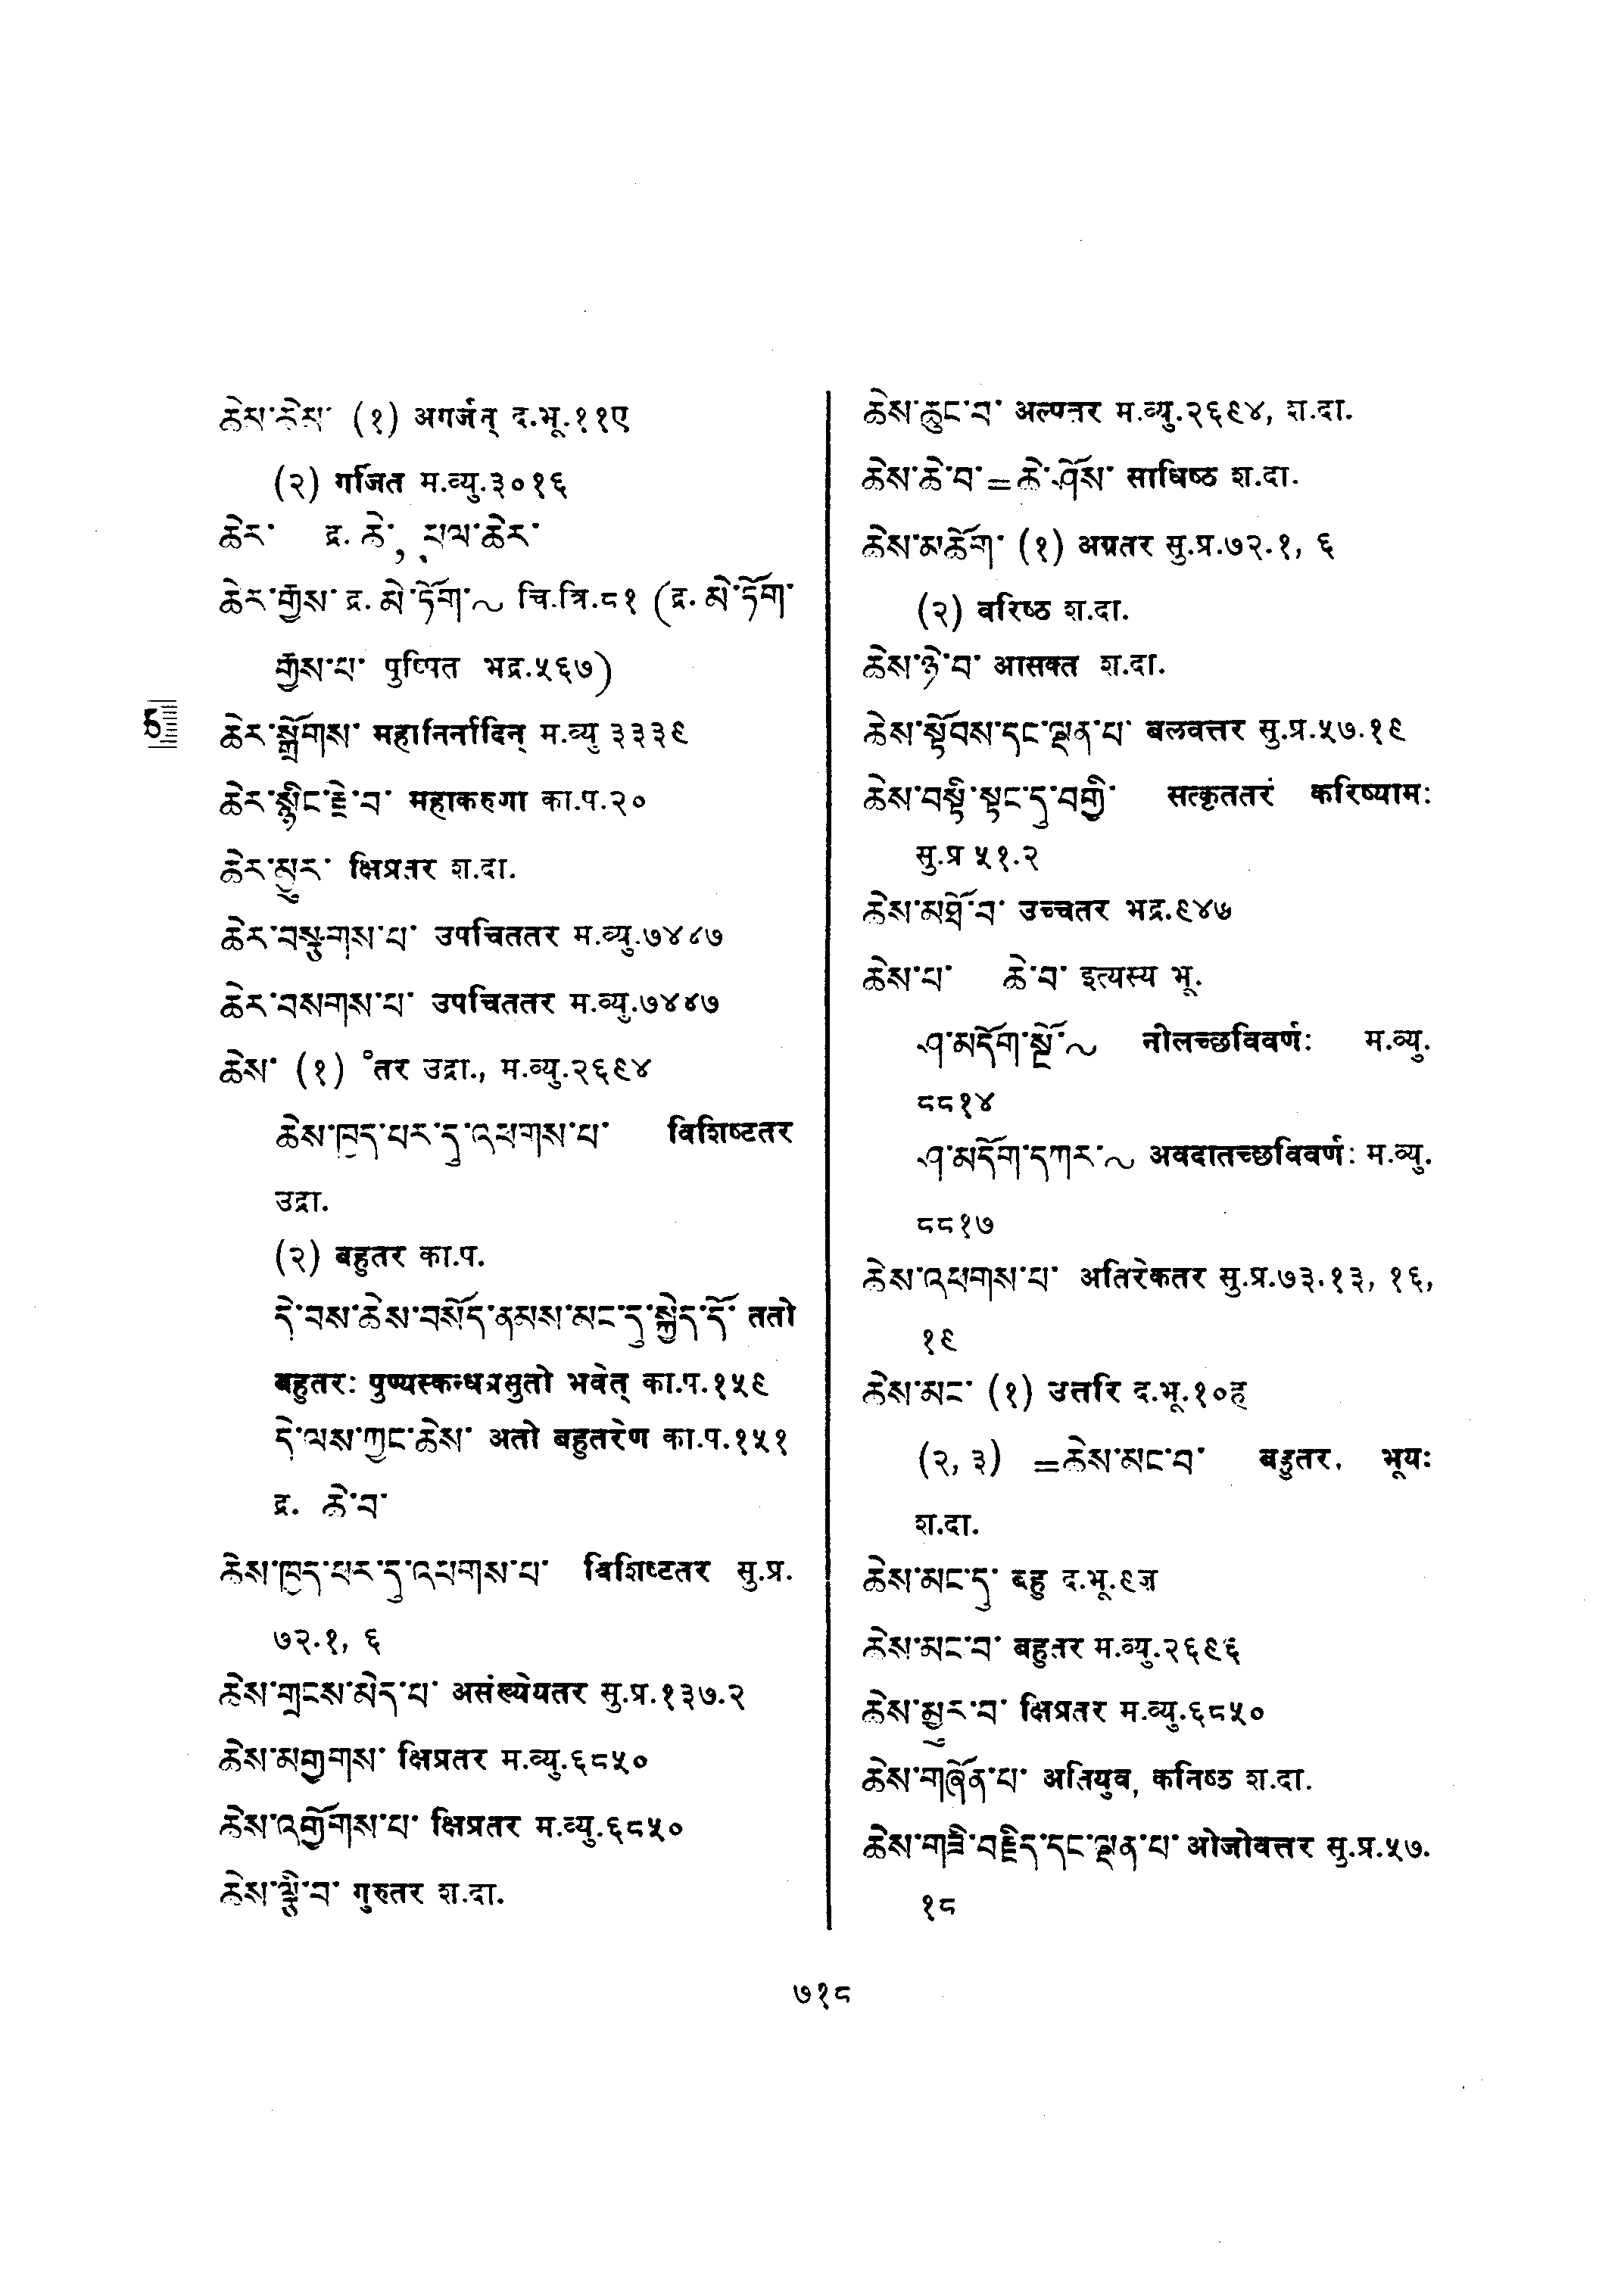 ཆེས་ཆེས་ (१) अगर्जन् द.भू.११ए
(२) गर्जित म.व्यु.३०१६
ཆེར་ द्र. ཆེ་, ཕལ་ཆེར་
ཆེར་རྒྱས་ द्र. མེ་ཏོག་~ चि.त्रि.८१ (द्र. མེ་ཏོག་
རྒྱས་པ་ पुष्पित भद्र.५६७)
ཆེར་སྒྲོགས་ महानिर्नादिन् म.व्यु ३३३९
ཆེར་སྙིང་རྗེ་བ་ महाकरुणा का.प.२०
ཆེར་མྱུར་ क्षिप्रतर श.दा.
ཆེར་བསྔགས་པ་ उपचिततर म.व्यु.७४८७
ཆེར་བསགས་པ་ उपचिततर म.व्यु.७४४७
ཆེས་ (१) °तर उद्रा., म.व्यु.२६९४
ཆེས་ཁྱད་པར་དུ་འཕགས་པ་ विशिष्टतर
उद्रा.
(२) बहुतर का.प.
དེ་བས་ཆེས་བསོད་ནམས་མང་དུ་སྐྱེད་དོ་ ततो
बहुतरः पुण्यस्कन्धप्रसुतो भवेत् का.प.१५९
དེ་ལས་ཀྱང་ཆེས་ अतो बहुतरेण का.प.१५१
द्र. ཆེ་བ་
ཆེས་ཁྱད་པར་དུ་འཕགས་པ་ विशिष्टतर सु.प्र.
७२.१, ६
ཆེས་གྲངས་མེད་པ་ असंख्येयतर सु.प्र.१३७.२
ཆེས་མགྱགས་ क्षिप्रतर म.व्यु.६८५०
ཆེས་འགྱོགས་པ་ क्षिप्रतर म.व्यु.६८५०
ཆེས་ལྕི་བ་ गुरुतर श.दा.
ཆེས་ཆུང་བ་ अल्पतर म.व्यु.२६९४, श.दा.
ཆེས་ཆེ་བ་=ཆེ་ཤོས་ साधिष्ठ श.दा.
ཆེས་མཆོག་ (१) अग्रतर सु.प्र.७२.१, ६
(२) वरिष्ठ श.दा.
ཆེས་ཉེ་བ་ आसक्त श.दा.
ཆེས་སྟོབས་དང་ལྡན་པ་ बलवत्तर सु.प्र.५७.१९
ཆེས་བསྟི་སྟང་དུ་བགྱི་ सत्कृततरं करिष्यामः
सु.प्र ५१.२
ཆེས་མཐོ་བ་ उच्चतर भद्र.९४७
ཆེས་པ་ ཆེ་བ་ इत्यस्य भू.
ཤ་མདོག་སྔོ་~ नीलच्छविवर्णः म.व्यु.
८८१४
ཤ་མདོག་དཀར་~ अवदातच्छविवर्णः म.व्यु.
८८१७
ཆེས་འཕགས་པ་ अतिरेकतर सु.प्र.७३.१३, १६,
१९
ཆེས་མང་ (१) उत्तरि द.भू.१०ह
(२, ३) =ཆེས་མང་བ་ बहुतर. भूयः
श.दा.
ཆེས་མང་དུ་ बहु द.भू.९ज
ཆེས་མང་བ་ बहुतर म.व्यु.२६९६
ཆེས་མྱུར་བ་ क्षिप्रतर म.व्यु.६८५०
ཆེས་གཞོན་པ་ अतियुव, कनिष्ठ श.दा.
ཆེས་གཟི་བརྗིད་དང་ལྡན་པ་ ओजोवत्तर सु.प्र.५७.
१८
७१८